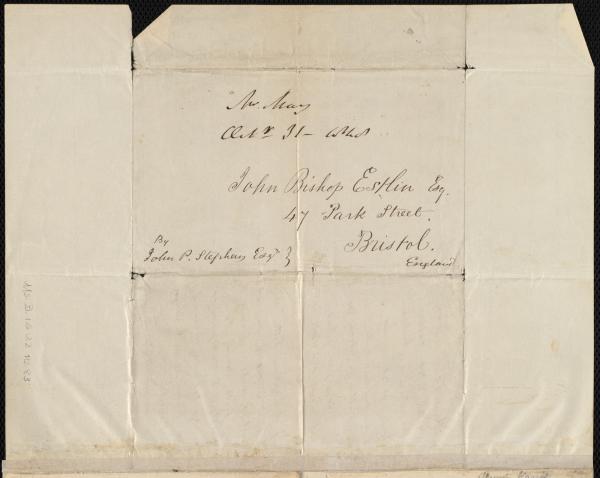 Mr. May
Octr. 31 - 
John Bishop Estlin Esq.
47 Park Street.
Bristol.
England
By
John P. Stephens Esqr }